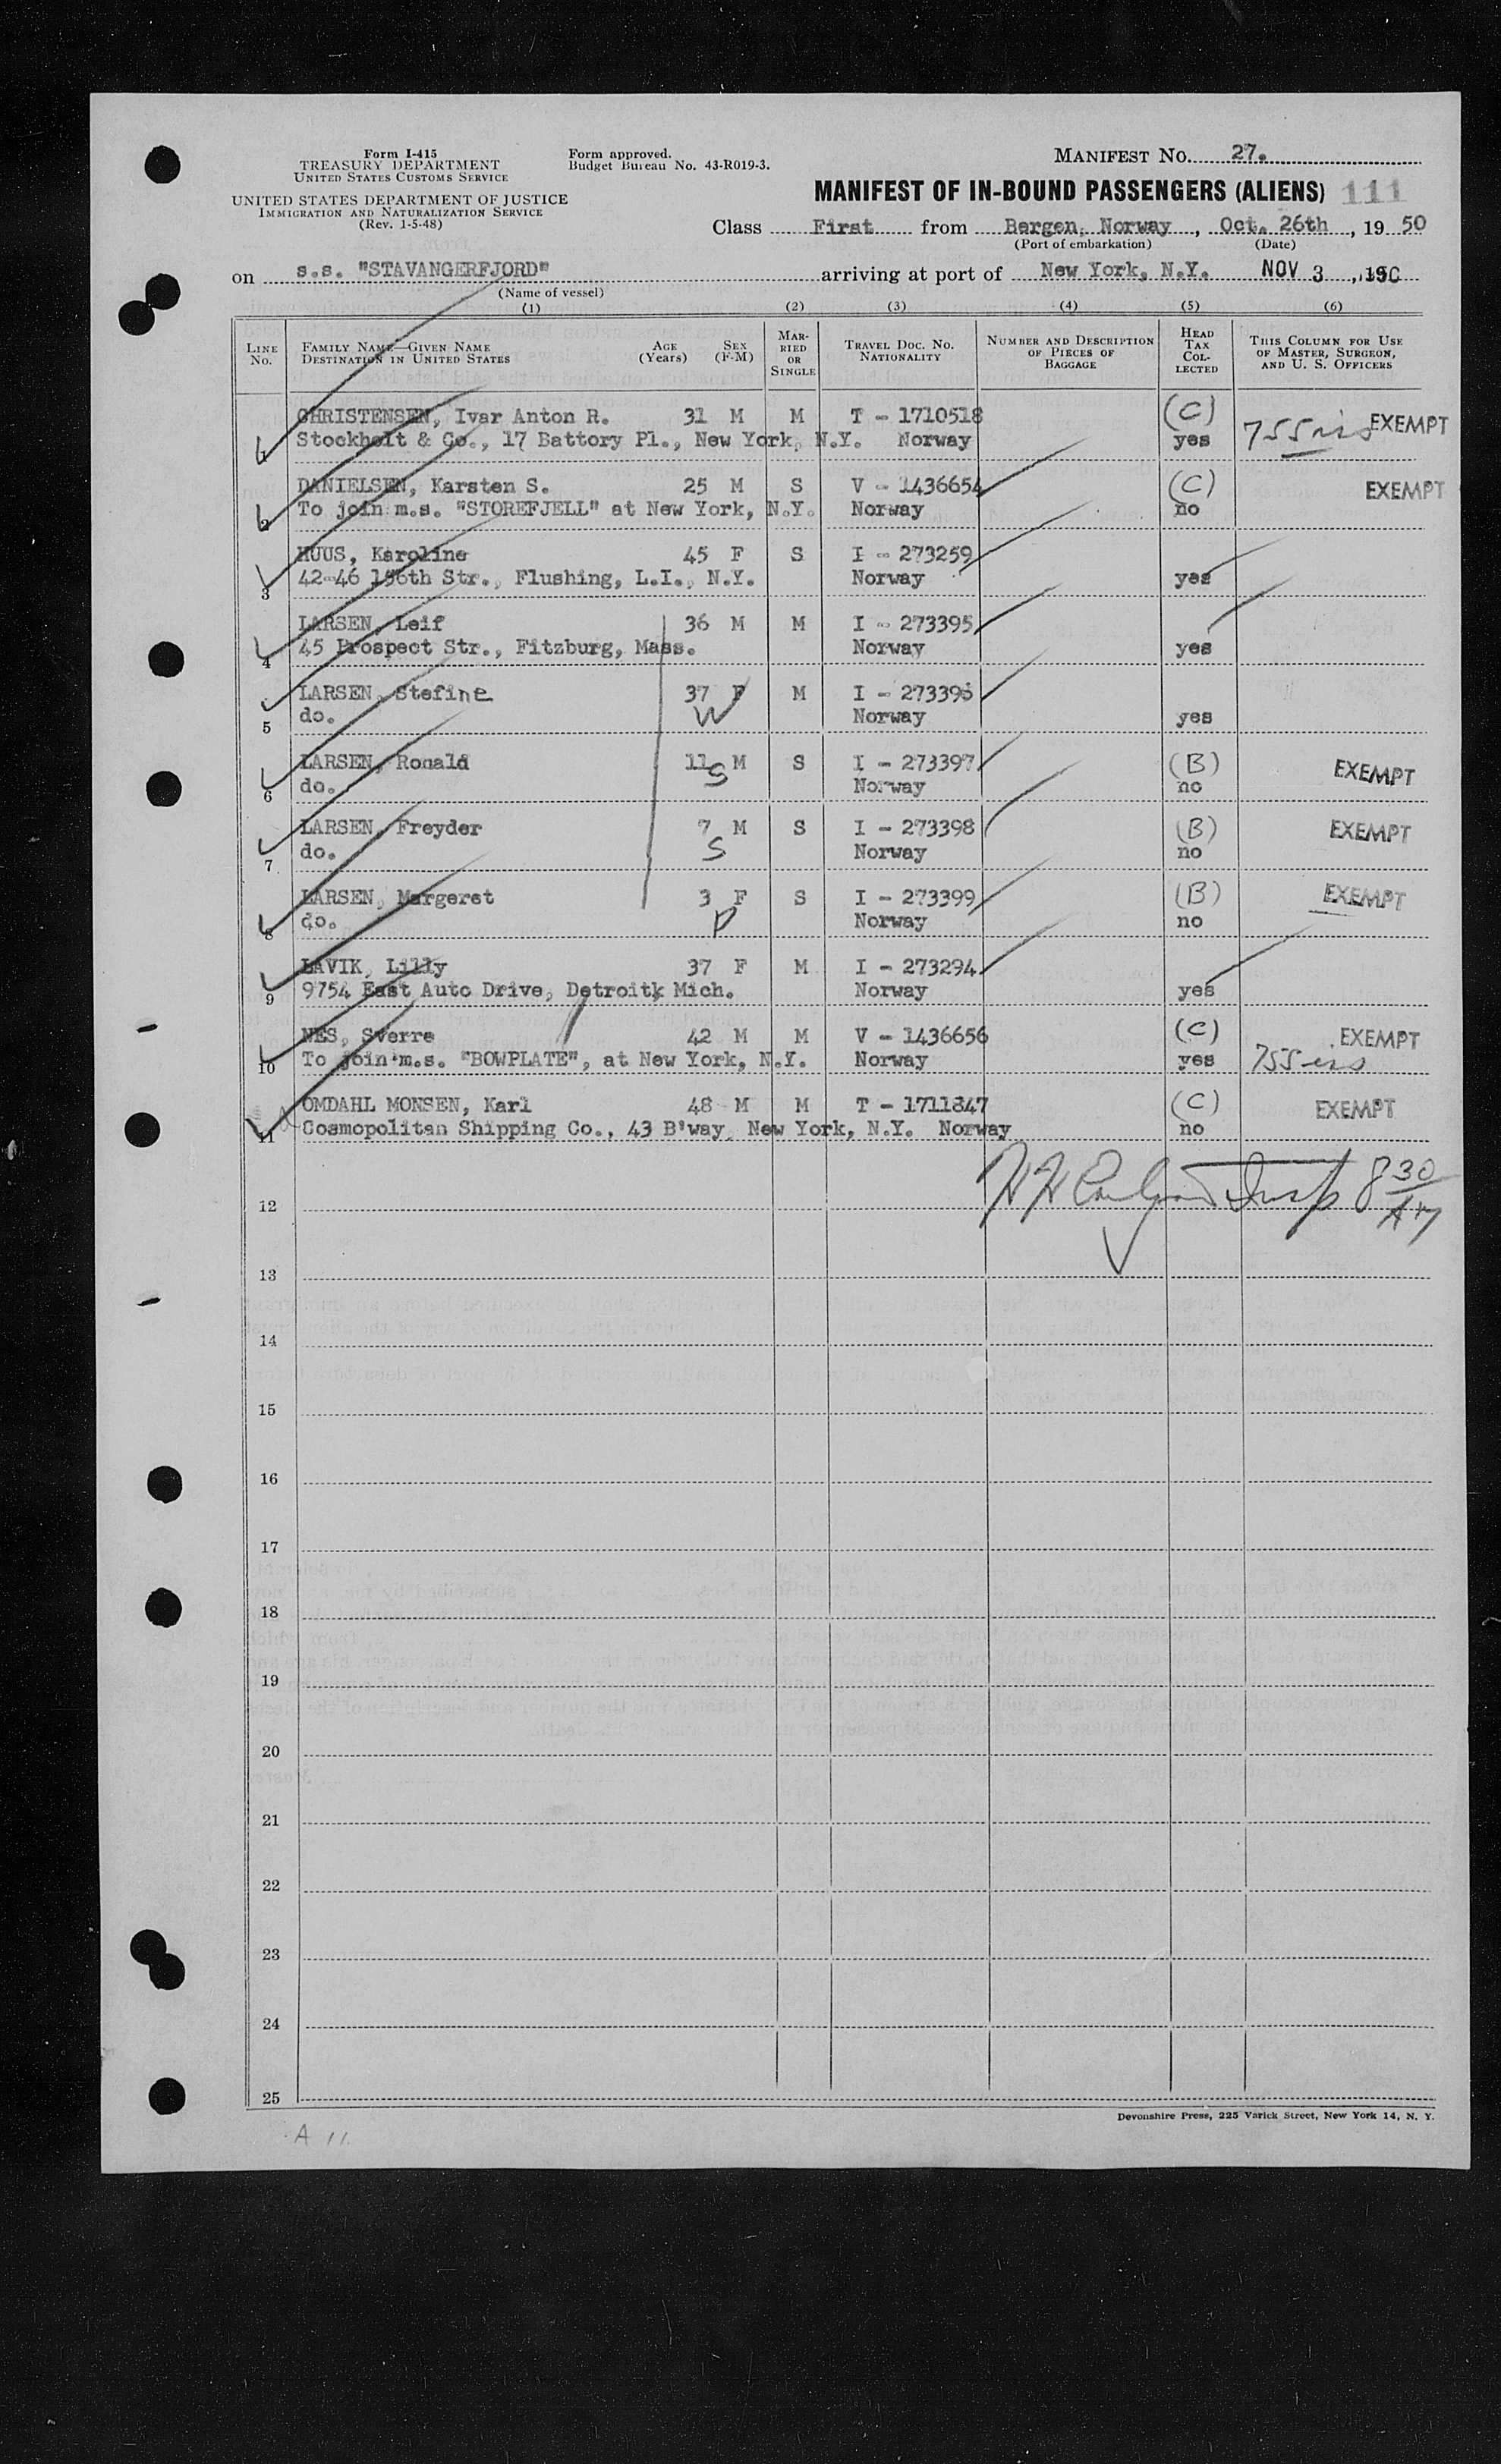 Form I-415
TREASURY DEPARTMENT
UNITED STATES CUSTOMS SERVICE
UNITED STATES DEPARTMENT OF JUSTICE
IMMIGRATION AND NATURALIZATION SERVICE
(Rev. 1-5-48)
Form approved.
Budget Bureau No. 43-R019-3.
MANIFEST NO. 27.
MANIFEST OF IN-BOUND PASSENGERS (ALIENS) 111
Class First from Bergen, Norway, Oct. 26th, 19 50
(Port of embarkation) (Date)
on s.s. "STAVANGERFJORD" arriving at port of New York, N.Y. NOV 3, 1950
(Name of vessel)
(1) (2) (3) (4) (5) (6)
LINE No. FAMILY NAME—GIVEN NAME DESTINATION IN UNITED STATES AGE (Years) SEX (F-M) MARRIED OR SINGLE TRAVEL DOC. NO. NATIONALITY NUMBER AND DESCRIPTION OF PIECES OF BAGGAGE HEAD TAX COLLECTED THIS COLUMN FOR USE OF MASTER, SURGEON, AND U. S. OFFICERS
CHRISTENSEN, Ivar Anton R. 31 M M T - 1710518 (C) EXEMPT
1 Stockholt & Co., 17 Battory Pl., New York, N.Y. Norway yes 755
DANIELSEN, Karsten S. 25 M S V - 1436654 (C) EXEMPT
2 To join m.s. "STOREFJELL" at New York, N.Y. Norway no
HUUS, Karoline 45 F S I - 273259
3 42-46 156th Str., Flushing, L.I., N.Y. Norway yes
LARSEN, Leif 36 M M I - 273395
4 45 Prospect Str., Fitzburg, Mass. Norway yes
LARSEN, Stefine 37 F M I - 273396
5 do. W Norway yes
LARSEN, Ronald 11 M S I - 273397 (B) EXEMPT
6 do. S Norway no
LARSEN, Freyder 7 M S I - 273398 (B) EXEMPT
7 do. S Norway no
LARSEN, Margeret 3 F S I - 273399 (B) EXEMPT
8 do. D Norway no
LAVIK, Lilly 37 F M I - 273294
9 9754 East Auto Drive, Detroitk Mich. Norway yes
NES, Sverre 42 M M V - 1436656 (C) EXEMPT
10 To join m.s. "BOWPLATE", at New York, N.Y. Norway yes 755
OMDAHL MONSEN, Karl 48 M M T - 1711847 (C) EXEMPT
11 Cosmopolitan Shipping Co., 43 B'way, New York, N.Y. Norway no
Insp 8 30 AM
12
13
14
15
16
17
18
19
20
21
22
23
24
25
Devonshire Press, 225 Varick Street, New York 14, N. Y.
A 11